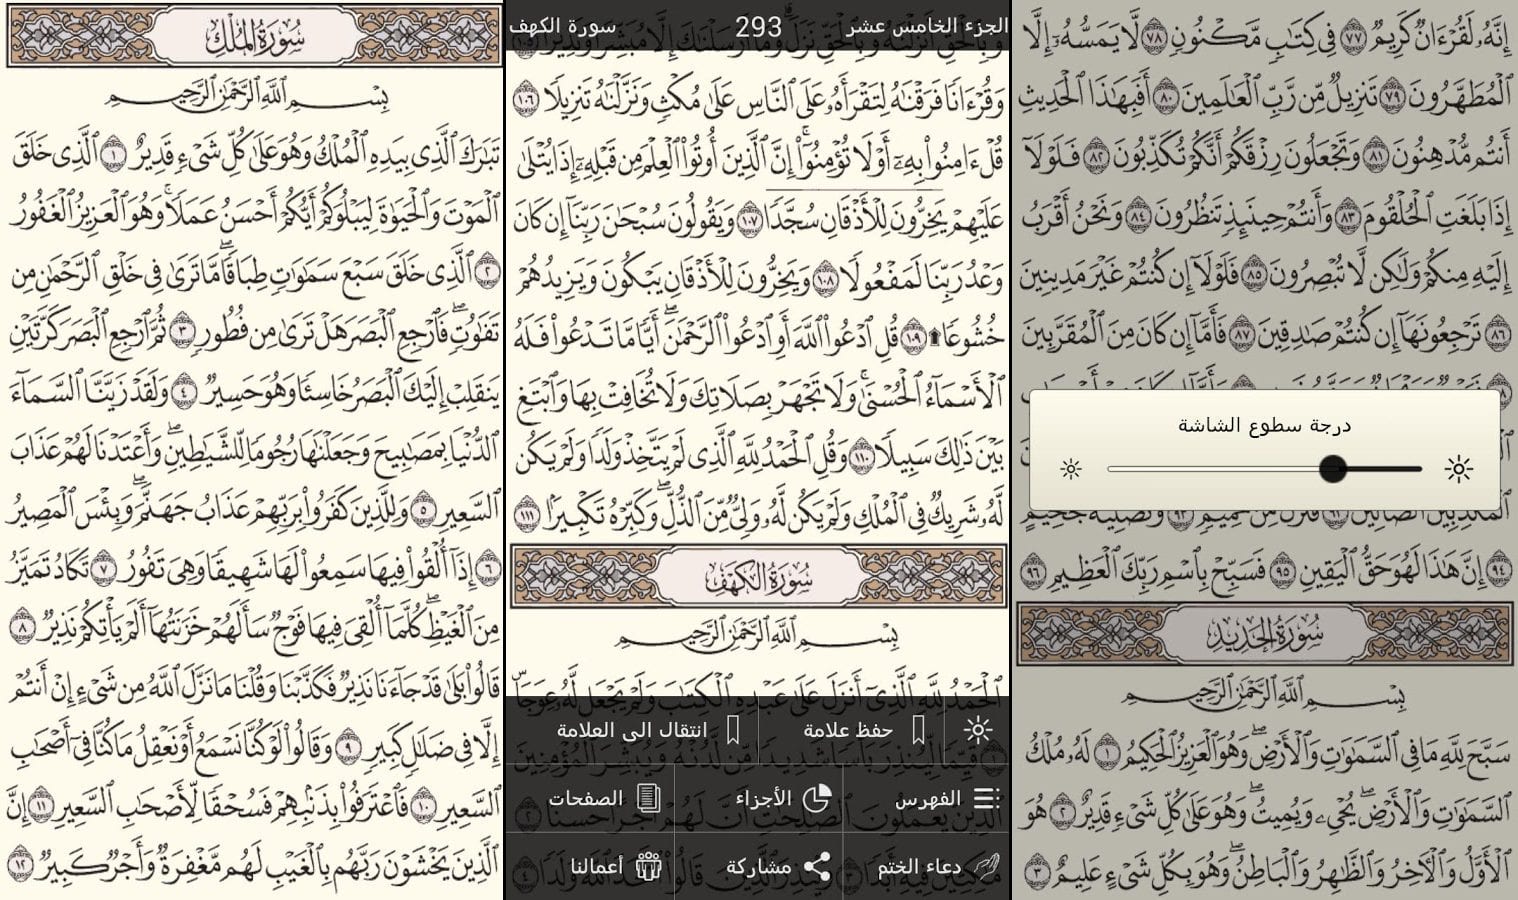 سُورَةُ المُلْكِ
بِسْمِ ٱللَّهِ ٱلرَّحْمَٰنِ ٱلرَّحِيمِ
تَبَٰرَكَ ٱلَّذِى بِيَدِهِ ٱلْمُلْكُ وَهُوَ عَلَىٰ كُلِّ شَىْءٍ قَدِيرٌ ١ ٱلَّذِى خَلَقَ
ٱلْمَوْتَ وَٱلْحَيَوٰةَ لِيَبْلُوَكُمْ أَيُّكُمْ أَحْسَنُ عَمَلًا ۚ وَهُوَ ٱلْعَزِيزُ ٱلْغَفُورُ
٢ ٱلَّذِى خَلَقَ سَبْعَ سَمَٰوَٰتٍ طِبَاقًا ۖ مَّا تَرَىٰ فِى خَلْقِ ٱلرَّحْمَٰنِ مِن
تَفَٰوُتٍ ۖ فَٱرْجِعِ ٱلْبَصَرَ هَلْ تَرَىٰ مِن فُطُورٍ ٣ ثُمَّ ٱرْجِعِ ٱلْبَصَرَ كَرَّتَيْنِ
يَنقَلِبْ إِلَيْكَ ٱلْبَصَرُ خَاسِئًا وَهُوَ حَسِيرٌ ٤ وَلَقَدْ زَيَّنَّا ٱلسَّمَآءَ
ٱلدُّنْيَا بِمَصَٰبِيحَ وَجَعَلْنَٰهَا رُجُومًا لِّلشَّيَٰطِينِ ۖ وَأَعْتَدْنَا لَهُمْ عَذَابَ
ٱلسَّعِيرِ ٥ وَلِلَّذِينَ كَفَرُوا۟ بِرَبِّهِمْ عَذَابُ جَهَنَّمَ ۖ وَبِئْسَ ٱلْمَصِيرُ
٦ إِذَآ أُلْقُوا۟ فِيهَا سَمِعُوا۟ لَهَا شَهِيقًا وَهِىَ تَفُورُ ٧ تَكَادُ تَمَيَّزُ
مِنَ ٱلْغَيْظِ ۖ كُلَّمَآ أُلْقِىَ فِيهَا فَوْجٌ سَأَلَهُمْ خَزَنَتُهَآ أَلَمْ يَأْتِكُمْ نَذِيرٌ ٨
قَالُوا۟ بَلَىٰ قَدْ جَآءَنَا نَذِيرٌ فَكَذَّبْنَا وَقُلْنَا مَا نَزَّلَ ٱللَّهُ مِن شَىْءٍ إِنْ أَنتُمْ
إِلَّا فِى ضَلَٰلٍ كَبِيرٍ ٩ وَقَالُوا۟ لَوْ كُنَّا نَسْمَعُ أَوْ نَعْقِلُ مَا كُنَّا فِىٓ أَصْحَٰبِ
ٱلسَّعِيرِ ١٠ فَٱعْتَرَفُوا۟ بِذَنۢبِهِمْ فَسُحْقًا لِّأَصْحَٰبِ ٱلسَّعِيرِ ١١ إِنَّ
ٱلَّذِينَ يَخْشَوْنَ رَبَّهُم بِٱلْغَيْبِ لَهُم مَّغْفِرَةٌ وَأَجْرٌ كَبِيرٌ ١٢
الجزء الخامس عشر 293 سورة الكهف
وَبِٱلْحَقِّ أَنزَلْنَٰهُ وَبِٱلْحَقِّ نَزَلَ ۗ وَمَآ أَرْسَلْنَٰكَ إِلَّا مُبَشِّرًا وَنَذِيرًا
وَقُرْءَانًا فَرَقْنَٰهُ لِتَقْرَأَهُۥ عَلَى ٱلنَّاسِ عَلَىٰ مُكْثٍ وَنَزَّلْنَٰهُ تَنزِيلًا ١٠٦
قُلْ ءَامِنُوا۟ بِهِۦٓ أَوْ لَا تُؤْمِنُوٓا۟ ۚ إِنَّ ٱلَّذِينَ أُوتُوا۟ ٱلْعِلْمَ مِن قَبْلِهِۦٓ إِذَا يُتْلَىٰ
عَلَيْهِمْ يَخِرُّونَ لِلْأَذْقَانِ سُجَّدًا ١٠٧ وَيَقُولُونَ سُبْحَٰنَ رَبِّنَآ إِن كَانَ
وَعْدُ رَبِّنَا لَمَفْعُولًا ١٠٨ وَيَخِرُّونَ لِلْأَذْقَانِ يَبْكُونَ وَيَزِيدُهُمْ
خُشُوعًا ۩ ١٠٩ قُلِ ٱدْعُوا۟ ٱللَّهَ أَوِ ٱدْعُوا۟ ٱلرَّحْمَٰنَ ۖ أَيًّا مَّا تَدْعُوا۟ فَلَهُ
ٱلْأَسْمَآءُ ٱلْحُسْنَىٰ ۚ وَلَا تَجْهَرْ بِصَلَاتِكَ وَلَا تُخَافِتْ بِهَا وَٱبْتَغِ
بَيْنَ ذَٰلِكَ سَبِيلًا ١١٠ وَقُلِ ٱلْحَمْدُ لِلَّهِ ٱلَّذِى لَمْ يَتَّخِذْ وَلَدًا وَلَمْ يَكُن
لَّهُۥ شَرِيكٌ فِى ٱلْمُلْكِ وَلَمْ يَكُن لَّهُۥ وَلِىٌّ مِّنَ ٱلذُّلِّ ۖ وَكَبِّرْهُ تَكْبِيرًۢا ١١١
سُورَةُ الكَهْفِ
بِسْمِ ٱللَّهِ ٱلرَّحْمَٰنِ ٱلرَّحِيمِ
ٱلْحَمْدُ لِلَّهِ ٱلَّذِىٓ أَنزَلَ عَلَىٰ عَبْدِهِ ٱلْكِتَٰبَ وَلَمْ يَجْعَل لَّهُۥ عِوَجَاۜ
حفظ علامة انتقال الى العلامة
١ قَيِّمًا لِّيُنذِرَ بَأْسًا شَدِيدًا مِّن لَّدُنْهُ وَيُبَشِّرَ ٱلْمُؤْمِنِينَ
الفهرس الأجزاء الصفحات
ٱلَّذِينَ يَعْمَلُونَ ٱلصَّٰلِحَٰتِ أَنَّ لَهُمْ أَجْرًا حَسَنًا ٢
دعاء الختم مشاركة أعمالنا
مَّٰكِثِينَ فِيهِ أَبَدًا ٣ وَيُنذِرَ ٱلَّذِينَ قَالُوا۟ ٱتَّخَذَ ٱللَّهُ وَلَدًا ٤
إِنَّهُۥ لَقُرْءَانٌ كَرِيمٌ ٧٧ فِى كِتَٰبٍ مَّكْنُونٍ ٧٨ لَّا يَمَسُّهُۥٓ إِلَّا
ٱلْمُطَهَّرُونَ ٧٩ تَنزِيلٌ مِّن رَّبِّ ٱلْعَٰلَمِينَ ٨٠ أَفَبِهَٰذَا ٱلْحَدِيثِ
أَنتُم مُّدْهِنُونَ ٨١ وَتَجْعَلُونَ رِزْقَكُمْ أَنَّكُمْ تُكَذِّبُونَ ٨٢ فَلَوْلَآ
إِذَا بَلَغَتِ ٱلْحُلْقُومَ ٨٣ وَأَنتُمْ حِينَئِذٍ تَنظُرُونَ ٨٤ وَنَحْنُ أَقْرَبُ
إِلَيْهِ مِنكُمْ وَلَٰكِن لَّا تُبْصِرُونَ ٨٥ فَلَوْلَآ إِن كُنتُمْ غَيْرَ مَدِينِينَ
٨٦ تَرْجِعُونَهَآ إِن كُنتُمْ صَٰدِقِينَ ٨٧ فَأَمَّآ إِن كَانَ مِنَ ٱلْمُقَرَّبِينَ
درجة سطوع الشاشة
٩٤ إِنَّ هَٰذَا لَهُوَ حَقُّ ٱلْيَقِينِ ٩٥ فَسَبِّحْ بِٱسْمِ رَبِّكَ ٱلْعَظِيمِ ٩٦
سُورَةُ الحَدِيدِ
بِسْمِ ٱللَّهِ ٱلرَّحْمَٰنِ ٱلرَّحِيمِ
سَبَّحَ لِلَّهِ مَا فِى ٱلسَّمَٰوَٰتِ وَٱلْأَرْضِ ۖ وَهُوَ ٱلْعَزِيزُ ٱلْحَكِيمُ ١ لَهُۥ مُلْكُ
ٱلسَّمَٰوَٰتِ وَٱلْأَرْضِ ۖ يُحْىِۦ وَيُمِيتُ ۖ وَهُوَ عَلَىٰ كُلِّ شَىْءٍ قَدِيرٌ ٢ هُوَ
ٱلْأَوَّلُ وَٱلْـَٔاخِرُ وَٱلظَّٰهِرُ وَٱلْبَاطِنُ ۖ وَهُوَ بِكُلِّ شَىْءٍ عَلِيمٌ ٣